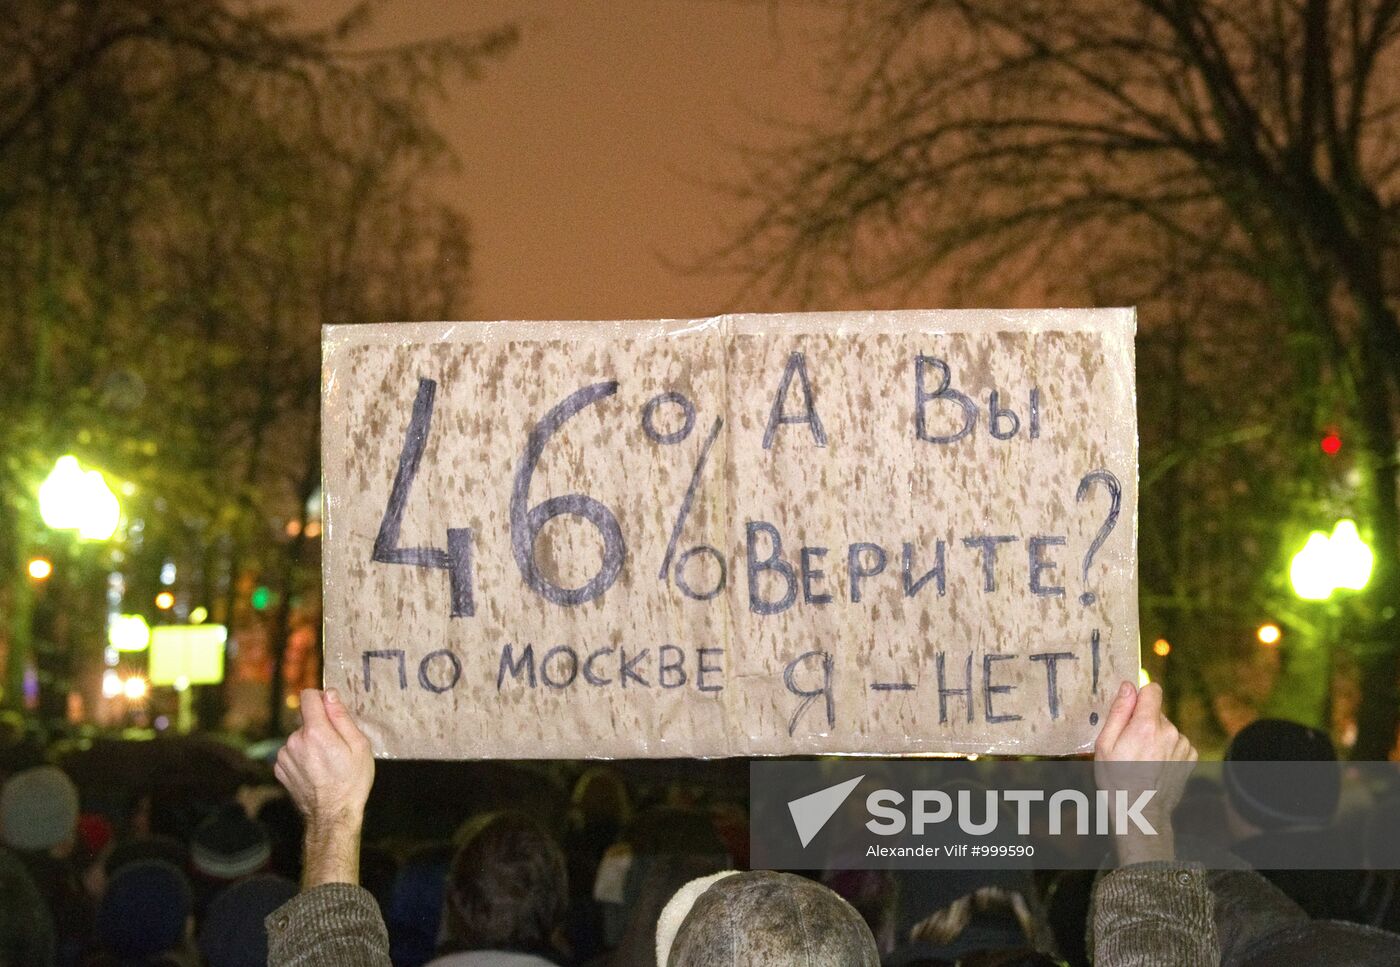 46%
по Москве
А Вы
Верите?
Я - НЕТ!
SPUTNIK
Alexander Vilf #999590